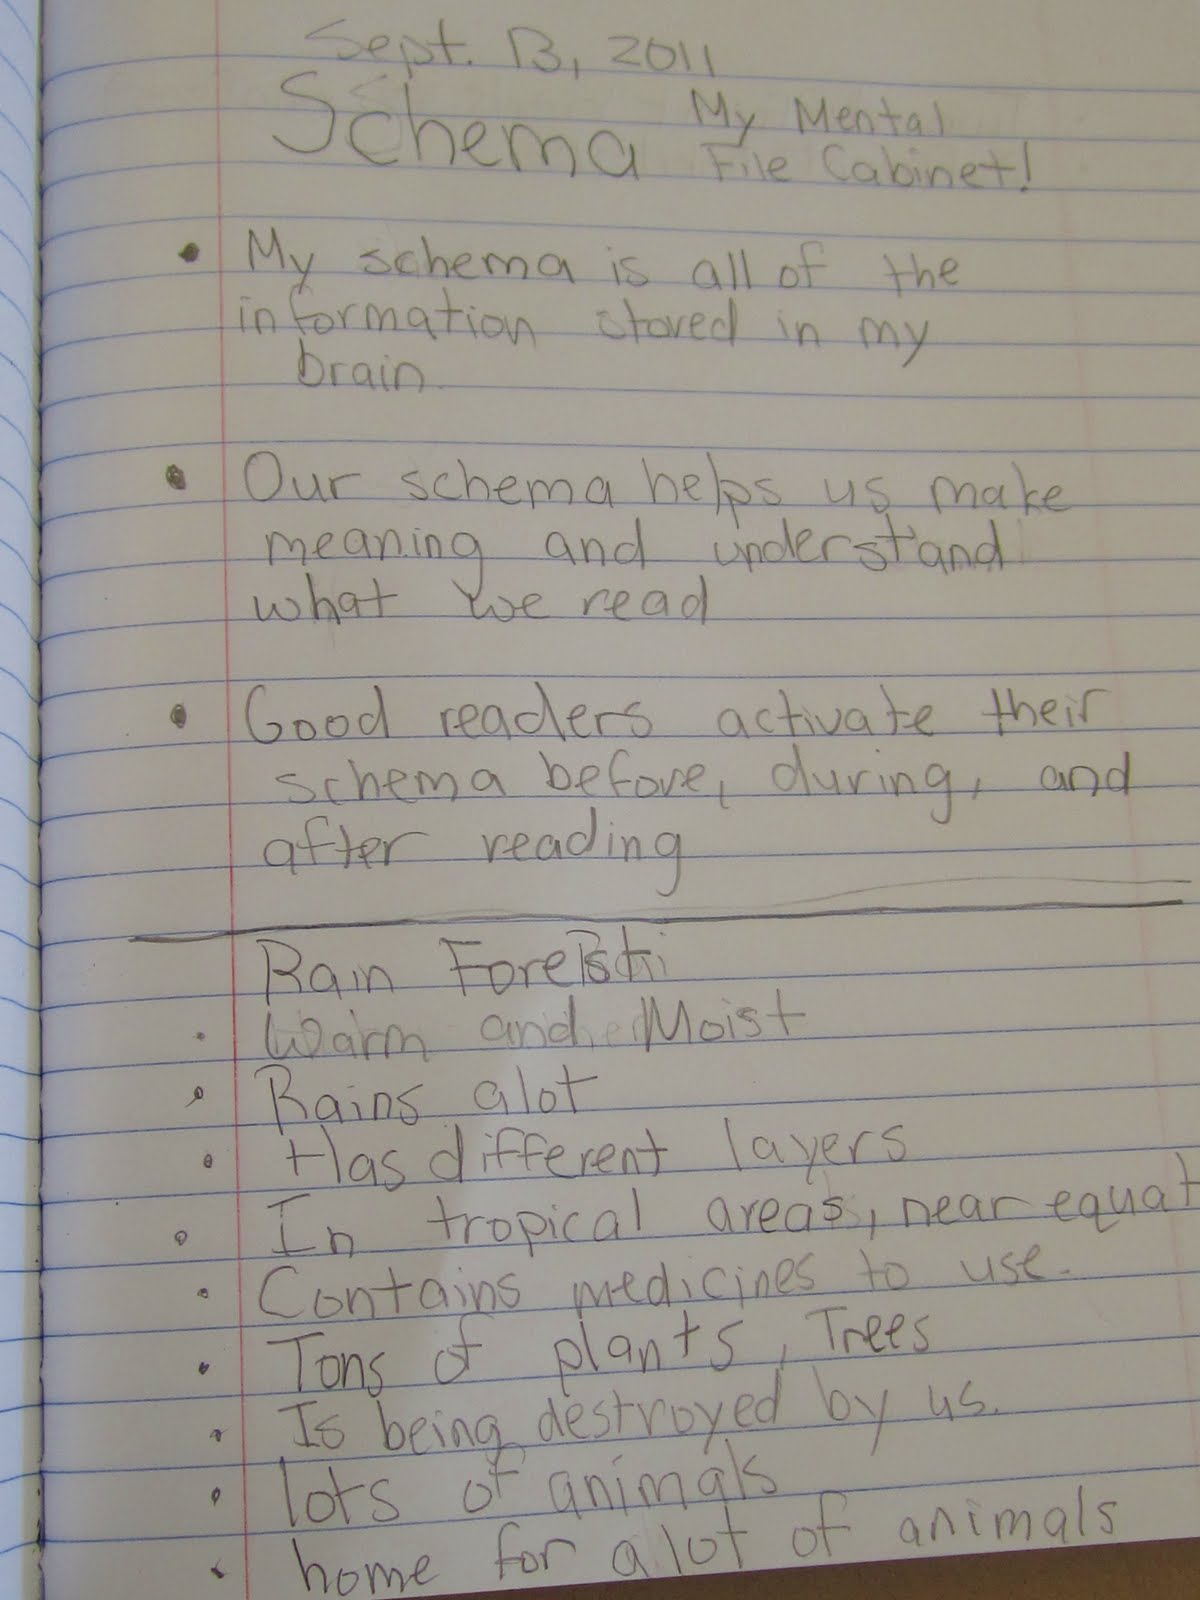 Sept. 13, 2011
Schema My Mental
File Cabinet!
• My schema is all of the
information stored in my
brain.
• Our schema helps us make
meaning and understand
what we read
• Good readers activate their
schema before, during, and
after reading
Rain Forest
• Warm and Moist
• Rains alot
• Has different layers
• In tropical areas, near equat
• Contains medicines to use.
• Tons of plants, Trees
• Is being destroyed by us.
• lots of animals
• home for alot of animals